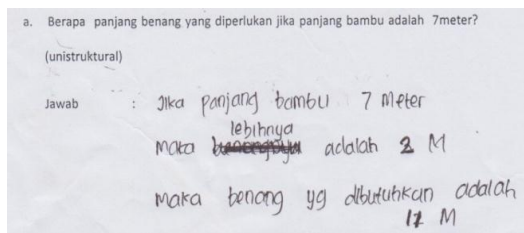 a. Berapa panjang benang yang diperlukan jika panjang bambu adalah 7meter?
(unistruktural)
Jawab : Jika panjang bambu 7 Meter
maka lebihnya adalah 2 M
maka benang yg dibutuhkan adalah
17 M